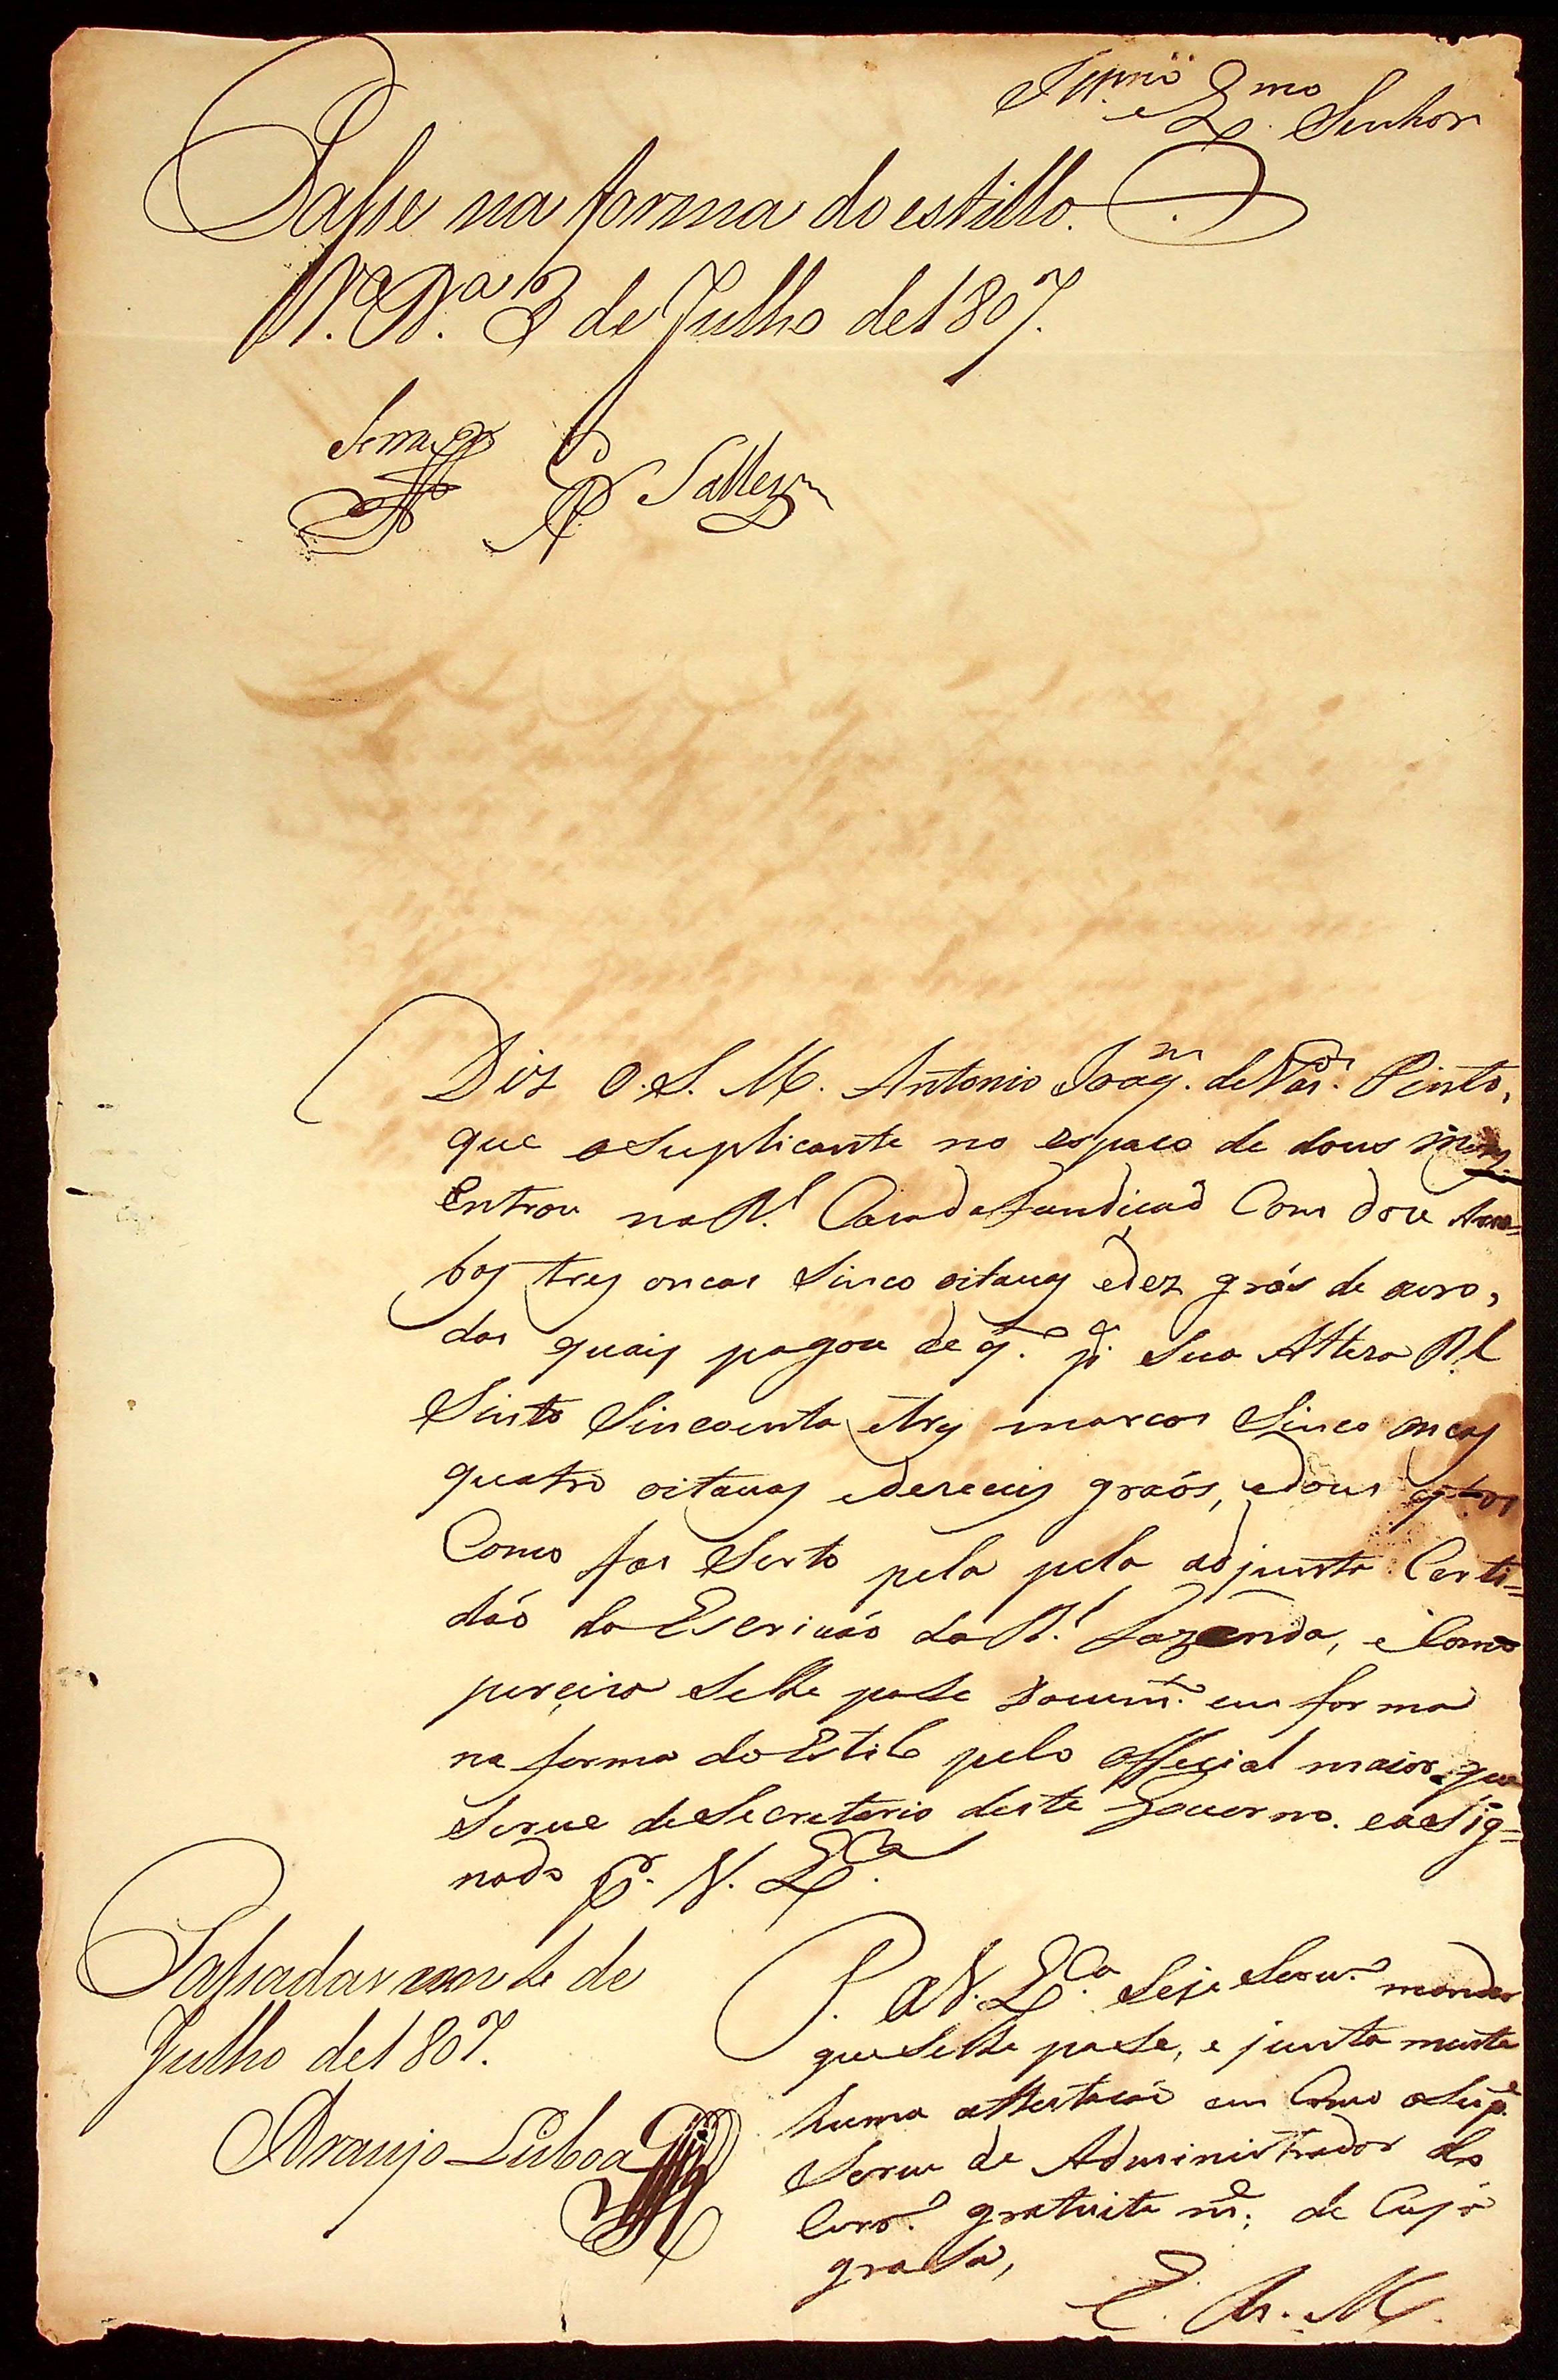 Illmo e Exmo Senhor
Passe na forma do estillo.
V.a B.a 3 de Julho de 1807.
Salles
Diz O. S. M. Antonio Joaq.m de Vas.cos Pinto,
que o Suplicante no espaco de dous
Entrou na R.l Caza da Fundicaõ Com doze Arro=
bas tres oncas Sinco oitavas e dez graõs de ouro,
dos quais pagou de q.to p.a Sua Alteza R.l
Sinto Sincoenta e tres marcos Sinco oncas
quatro oitavas e dezeceis graõs, e dous q.tos
Como fas Serto pela pela adjunta Certi=
daõ do Escrivaõ da R.l Fazenda, e Como
perciza Selhe pase Docum.to em forma
na forma do Estilo pelo Official maior que
Serve de Secretario deste Governo. e asig=
nado P.r V. Ex.ca
P. a V. Ex.ca Seja Serv.o mandar
que Selhe pase, e junta mente
huma attestacaõ em Como o Sup.e
Serve de Administrador do
Corr.o gratuita m.e; de Cuja
grasa,
E. R. M.
Passada em de
Julho de 1807.
Araujo Lisboa